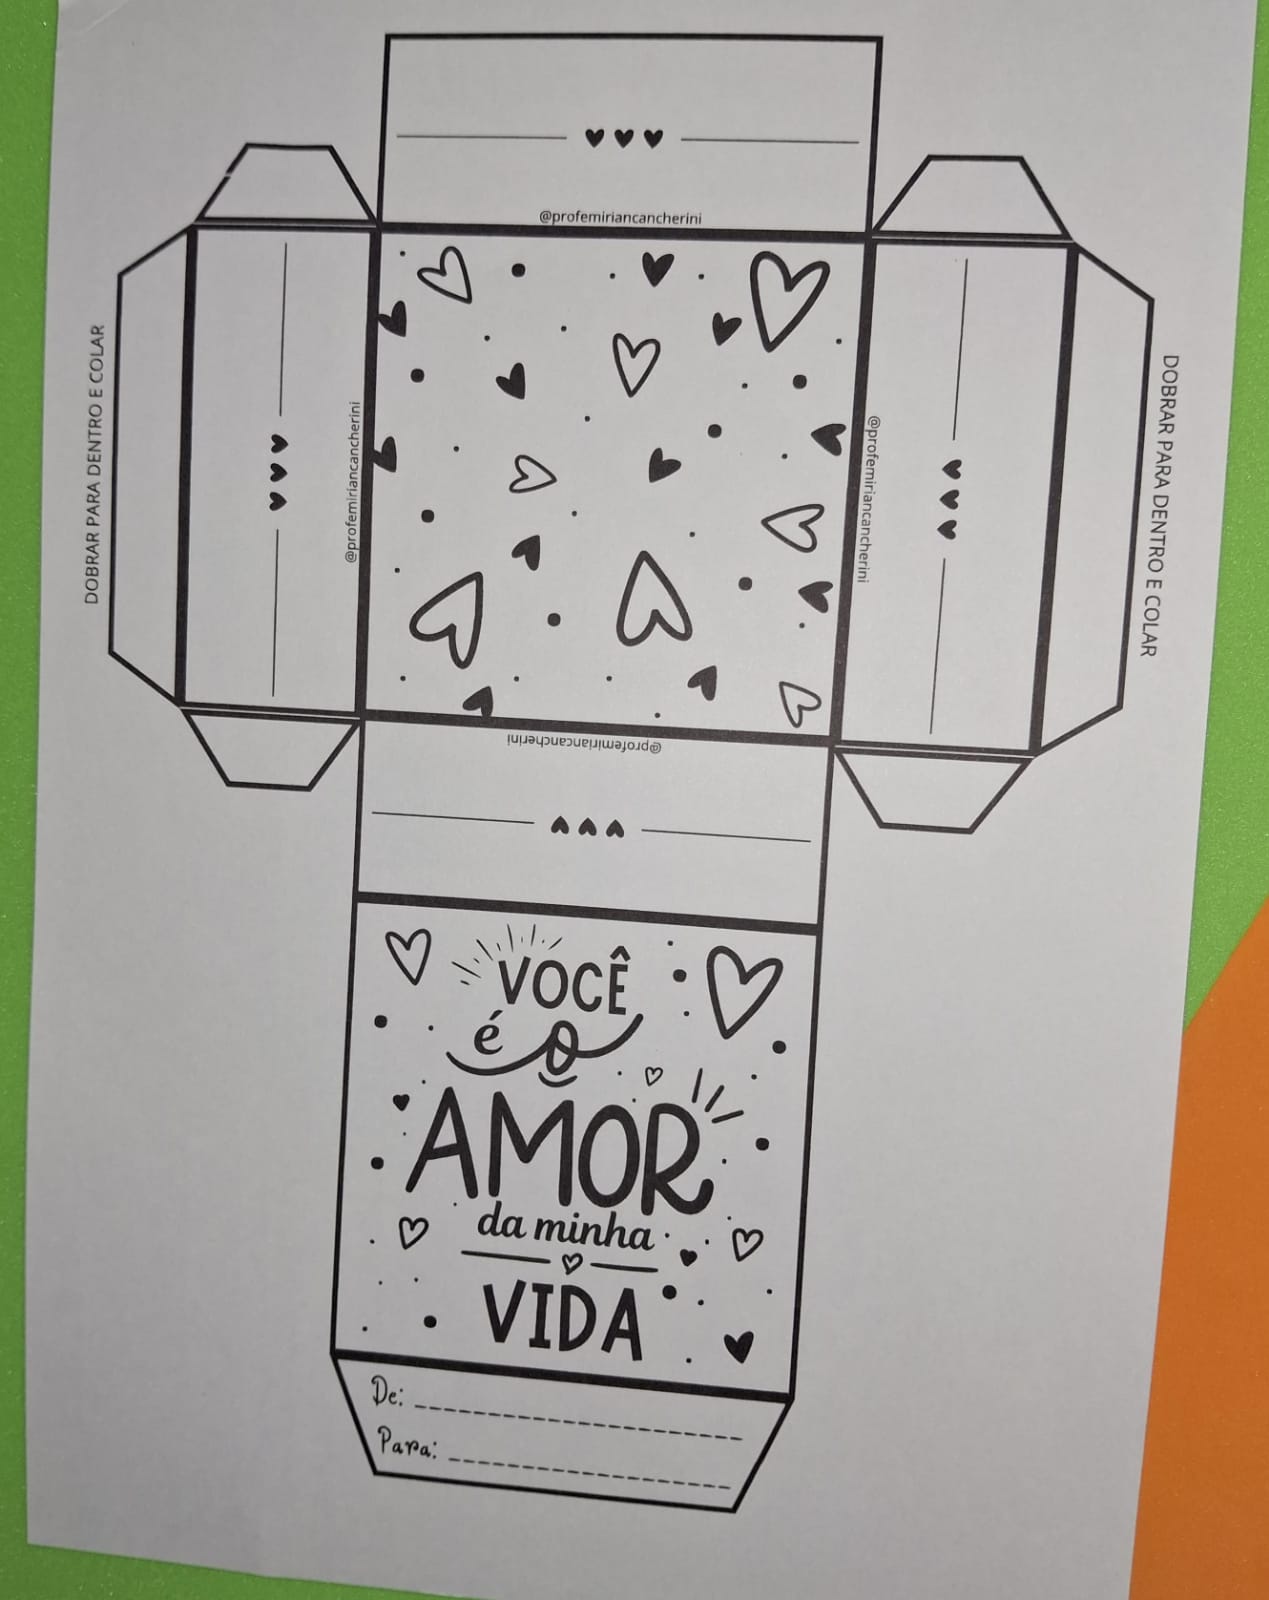 @profemiriancancherini
DOBRAR PARA DENTRO E COLAR
@profemiriancancherini
@profemiriancancherini
DOBRAR PARA DENTRO E COLAR
@profemiriancancherini
VOCÊ
é o
AMOR
da minha
VIDA
De:
Para: